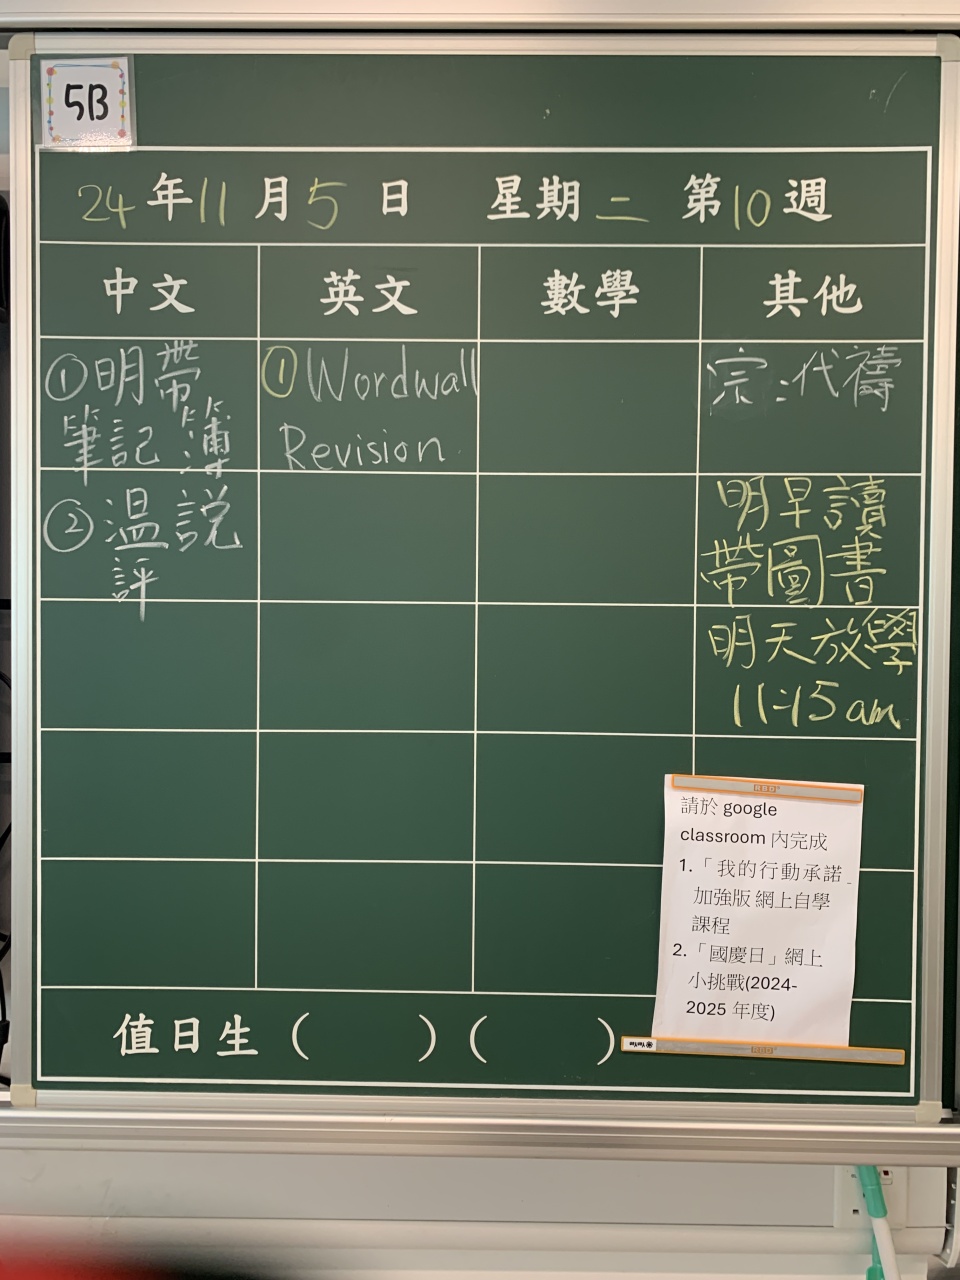 5B
24年11月5日 星期二 第10週
中文 英文 數學 其他
①明帶
筆記簿
②温説
評
①Wordwall
Revision
宗:代禱
明早讀
帶圖書
明天放學
11:15am
請於 google
classroom 內完成
1.「我的行動承諾
加強版 網上自學
課程
2.「國慶日」網上
小挑戰(2024-
2025 年度)
值日生( )( )